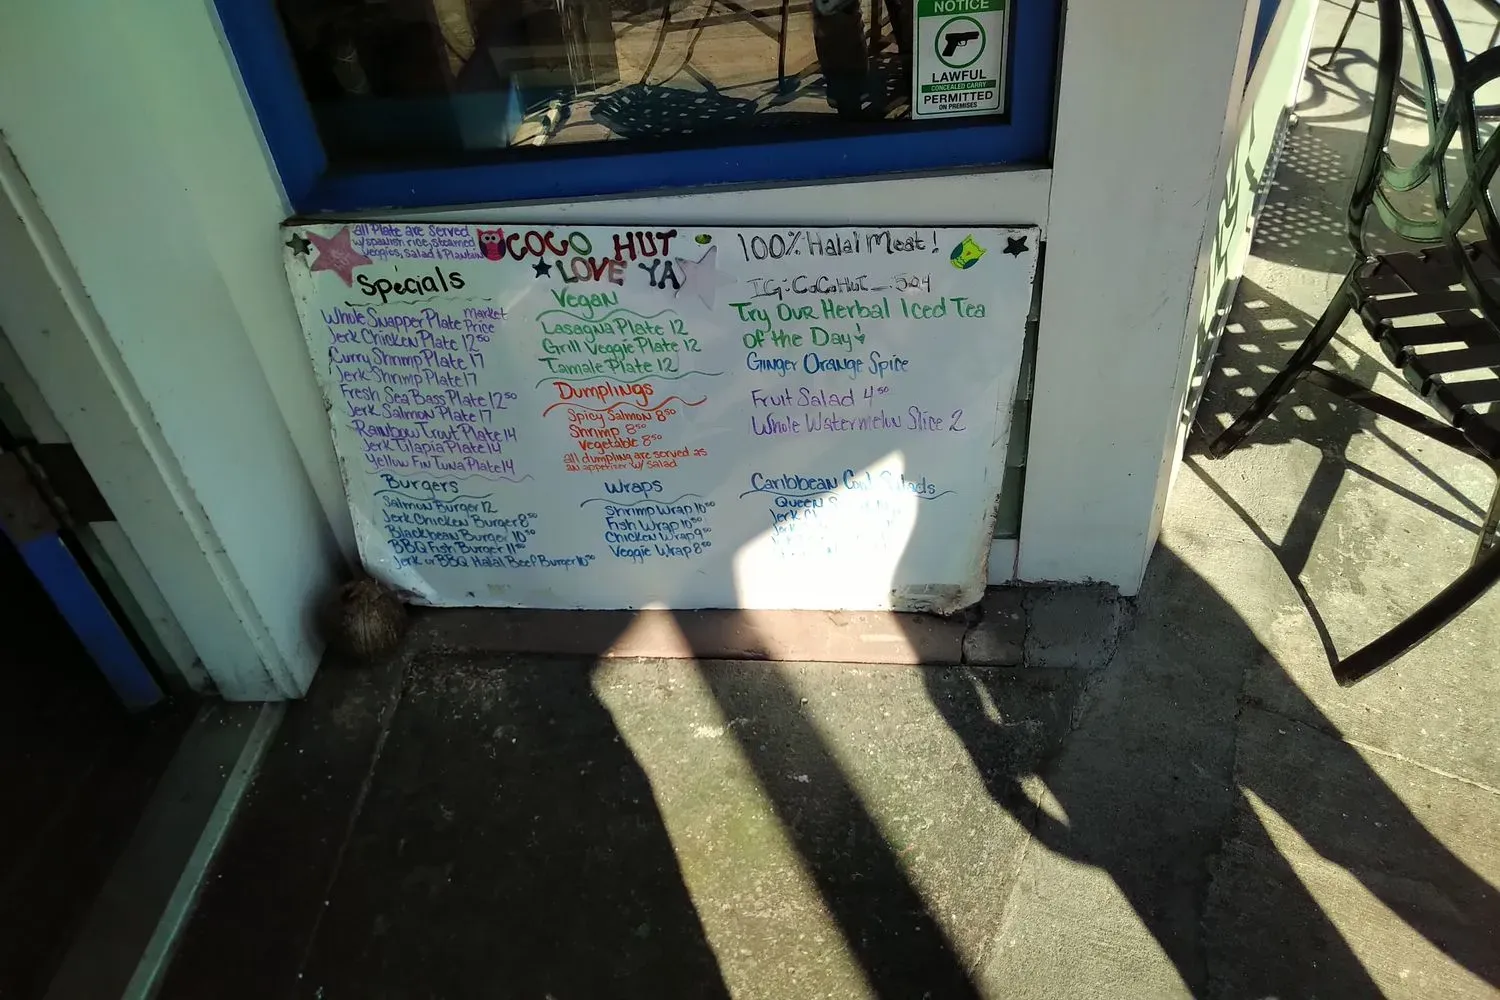 NOTICE
LAWFUL
CONCEALED CARRY
PERMITTED
ON PREMISES
all Plate are Served
w/spanish rice, steamed
veggies, salad & Plantain
COCO HUT
LOVE YA
Specials
Whole Snapper Plate Market Price
Jerk Chicken Plate 12⁵⁰
Curry Shrimp Plate 17
Jerk Shrimp Plate 17
Fresh Sea Bass Plate 12⁵⁰
Jerk Salmon Plate 17
Rainbow Trout Plate 14
Jerk Tilapia Plate 14
Yellow Fin Tuna Plate 14
Burgers
Salmon Burger 12
Jerk Chicken Burger 8⁵⁰
Blackbean Burger 10⁵⁰
BBQ Fish Burger 11⁵⁰
Jerk or BBQ Halal Beef Burger 10⁵⁰
Vegan
Lasagna Plate 12
Grill Veggie Plate 12
Tamale Plate 12
Dumplings
Spicy Salmon 8⁵⁰
Shrimp 8⁵⁰
Vegetable 8⁵⁰
all dumpling are served as
an appetizer w/ salad
Wraps
Shrimp Wrap 10⁵⁰
Fish Wrap 10⁵⁰
Chicken Wrap 9⁵⁰
Veggie Wrap 8⁵⁰
100% Halal Meat!
IG: CoCoHut_504
Try Our Herbal Iced Tea
of the Day
Ginger Orange Spice
Fruit Salad 4⁵⁰
Whole Watermelon Slice 2
Caribbean Cool Salads
Queen
Jerk